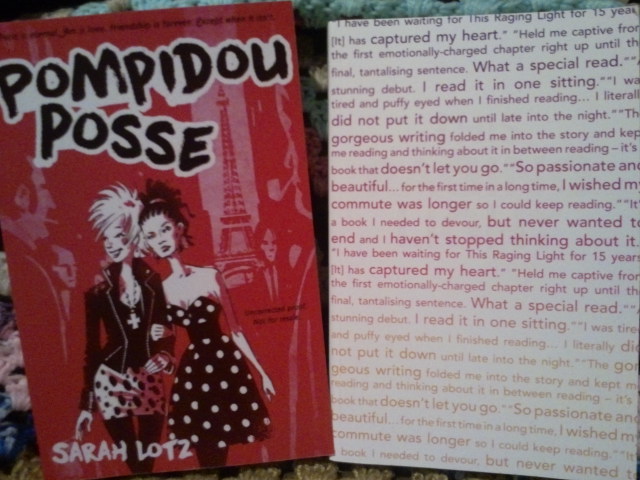 Paris is eternal. Art is time. Friendship is forever. Except when it isn't.
POMPIDOU
POSSE
Uncorrected proof
Not for resale
SARAH LOTZ
I have been waiting for This Raging Light for 15 year
[It] has captured my heart." "Held me captive from
the first emotionally-charged chapter right up until th
final, tantalising sentence. What a special read.""
stunning debut. I read it in one sitting.""I wa
tired and puffy eyed when I finished reading... I literall
did not put it down until late into the night.""Th
gorgeous writing folded me into the story and kep
me reading and thinking about it in between reading – it's
book that doesn't let you go.""So passionate and
beautiful... for the first time in a long time, I wished m
commute was longer so I could keep reading.""It'
a book I needed to devour, but never wanted t
end and I haven't stopped thinking about it.
"I have been waiting for This Raging Light for 15 years
[It] has captured my heart." "Held me captive from
the first emotionally-charged chapter right up until th
final, tantalising sentence. What a special read.""
stunning debut. I read it in one sitting.""I was tire
and puffy eyed when I finished reading... I literally di
not put it down until late into the night.""The gor
geous writing folded me into the story and kept m
reading and thinking about it in between reading – it's
book that doesn't let you go.""So passionate an
beautiful... for the first time in a long time, I wished m
commute was longer so I could keep reading.""It
book I needed to devour, but never wanted t